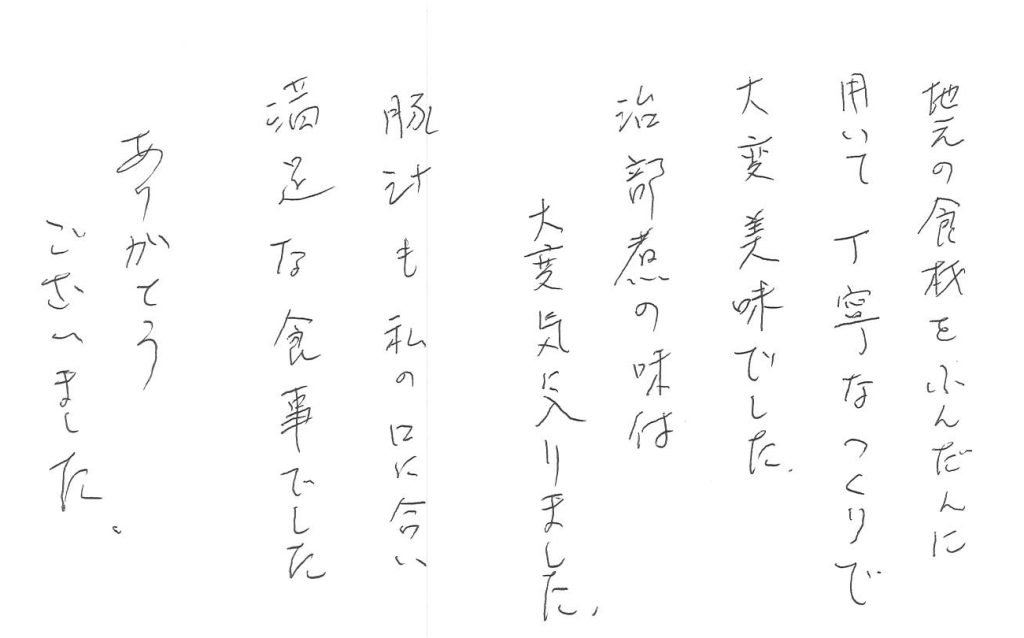 地元の食材をふんだんに
用いて丁寧なつくりで
大変美味でした.
治部煮の味付
大変気に入りました,
豚汁も私の口に合い
満足な食事でした
ありがとう
ございました。